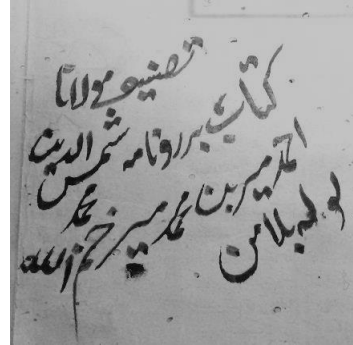 تصنیف مولانا
کتاب برزونامه شمس الدین
محمد
احمد میر بن محمد میر ختم الله